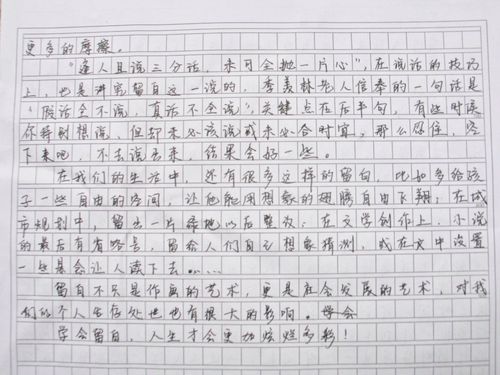 更多的摩擦。
"逢人且说三分话，未可全抛一片心"，在说话的技巧
上，也是讲究留白这一说的，季羡林先人信奉的一句话是
"假话全不说，真话不全说"，关键点在后半句，有些时候
你特别想说，但却未必该说或未必合时宜，那么忍住，咽
下来吧，不去说出来，结果会好一些。
在我们的生活中，还有很多这样的留白，比如多给孩
子一些自由的空间，让他能用想象的翅膀自由飞翔；在城
市规划中，留出一片绿地以后整改；在文学创作上，小说
的最后有省略号，留给人们自己想象猜测，或在文中设置
一些悬念让人读下去……
留白不只是作画的艺术，更是社会发展的艺术，对我
们的个人生存处世也有很大的影响。学会
学会留白，人生才会更加炫烂多彩！